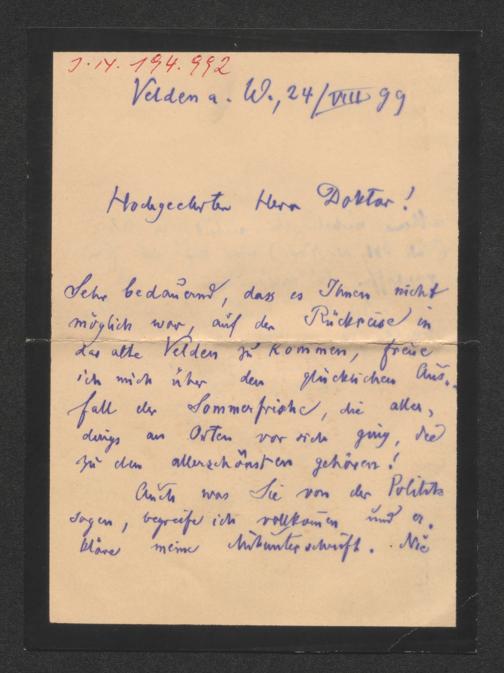 J.N. 194.992
Velden a. W., 24/VIII 99
Hochgeehrter Herr Doktor!
Sehr bedauernd, dass es Ihnen nicht
möglich war, auf der Rückreise in
das alte Velden zu kommen, freue
ich mich über den glücklichen Aus-
fall der Sommerfrische, die aller-
dings an Orten vor sich ging, die
zu den allerschönsten gehören!
Auch was Sie von der Politik
sagen, begreife ich vollkommen und er-
kläre meine Mitunterschrift. Nie